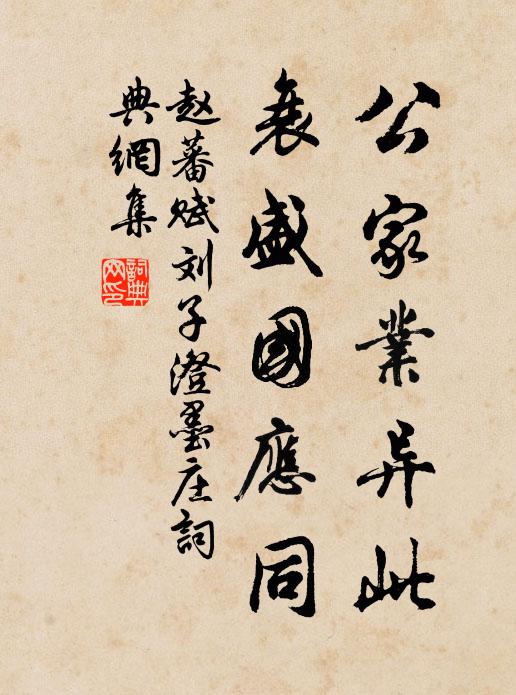 公家業异此
衰盛國應同
赵蕃赋刘子澄墨庄詞
典網集
詞典
网印